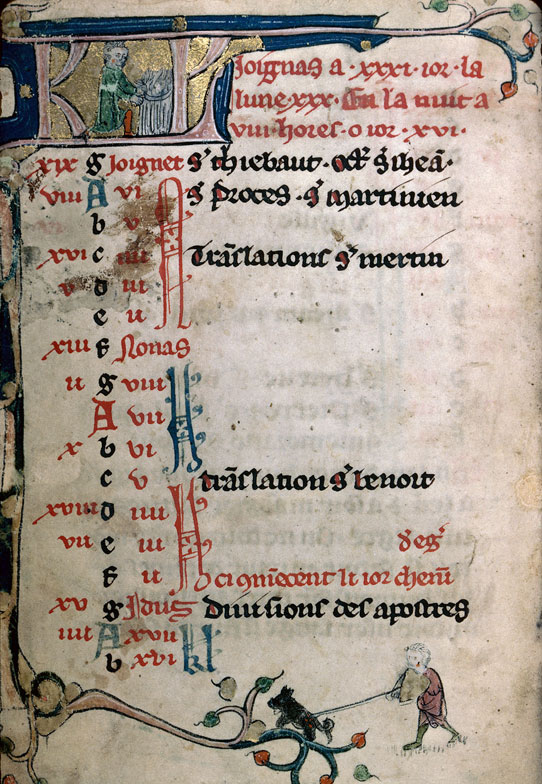 KL Joignas a · xxxi · ior · la
lune · xxx · En la nuit a
viii · hores · o ior · xvi ·
xix g Joignet st thiebaut · oct
viii A vi N st proces · st martinien
b v
xvi c iiii Trāslations st mertin
v d iii
e ii
xiii f Nonas
ii g viii
A vii
x b vi
c v trāslation st benoit
xviii d iiii
vii e iii
f ii ci li ior
xv g Idus diuisions des apostres
iiii A xvii kl
b xvi